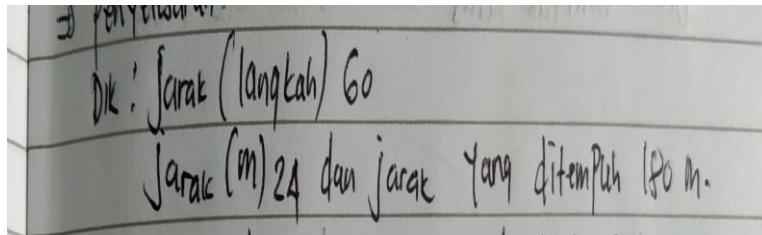 ⇒ Penyelesaian:
Dik: Jarak (langkah) 60
Jarak (m) 24 dan jarak yang ditempuh 180 m.